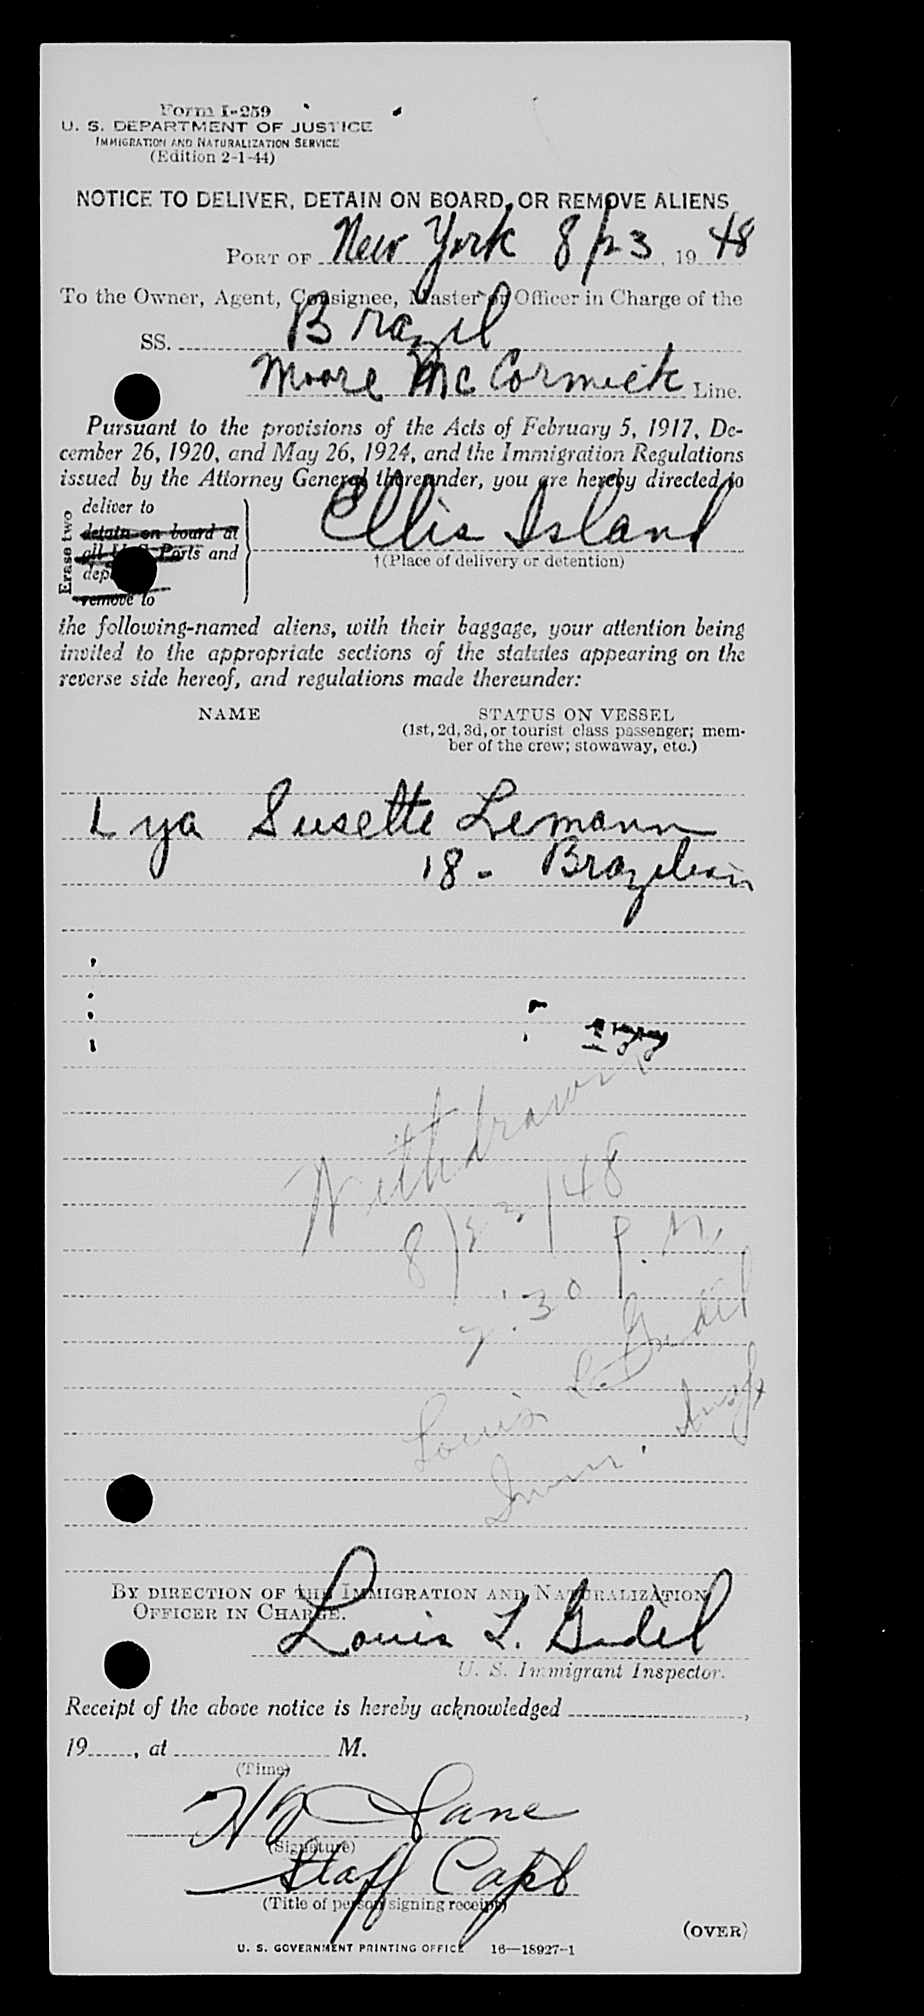 Form I-259
U. S. DEPARTMENT OF JUSTICE
IMMIGRATION AND NATURALIZATION SERVICE
(Edition 2-1-44)
NOTICE TO DELIVER, DETAIN ON BOARD, OR REMOVE ALIENS
PORT OF New York 8/23, 1948
To the Owner, Agent, Consignee, Master or Officer in Charge of the
SS. Brazil
Moore McCormick Line.
Pursuant to the provisions of the Acts of February 5, 1917, De-
cember 26, 1920, and May 26, 1924, and the Immigration Regulations
issued by the Attorney General thereunder, you are hereby directed to
Erase two
deliver to
detain on board at
all U. S. Ports and
dep
remove to
Ellis Island
†(Place of delivery or detention)
the following-named aliens, with their baggage, your attention being
invited to the appropriate sections of the statutes appearing on the
reverse side hereof, and regulations made thereunder:
NAME STATUS ON VESSEL
(1st, 2d, 3d, or tourist class passenger; mem-
ber of the crew; stowaway, etc.)
Lya Susette Lemann
18 - Brazilian
Withdrawn
8/23/48
7:30 P.M.
Louis L. Gudel
Imm. Insp
BY DIRECTION OF THE IMMIGRATION AND NATURALIZATION
OFFICER IN CHARGE.
Louis L. Gudel
U. S. Immigrant Inspector.
Receipt of the above notice is hereby acknowledged ,
19 , at M.
(Time)
Lane
(Signature)
Staff Capt
(Title of person signing receipt)
(OVER)
U. S. GOVERNMENT PRINTING OFFICE 16—18927-1